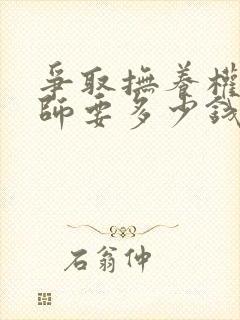 爭取撫養權
師要多少錢
石翁仲